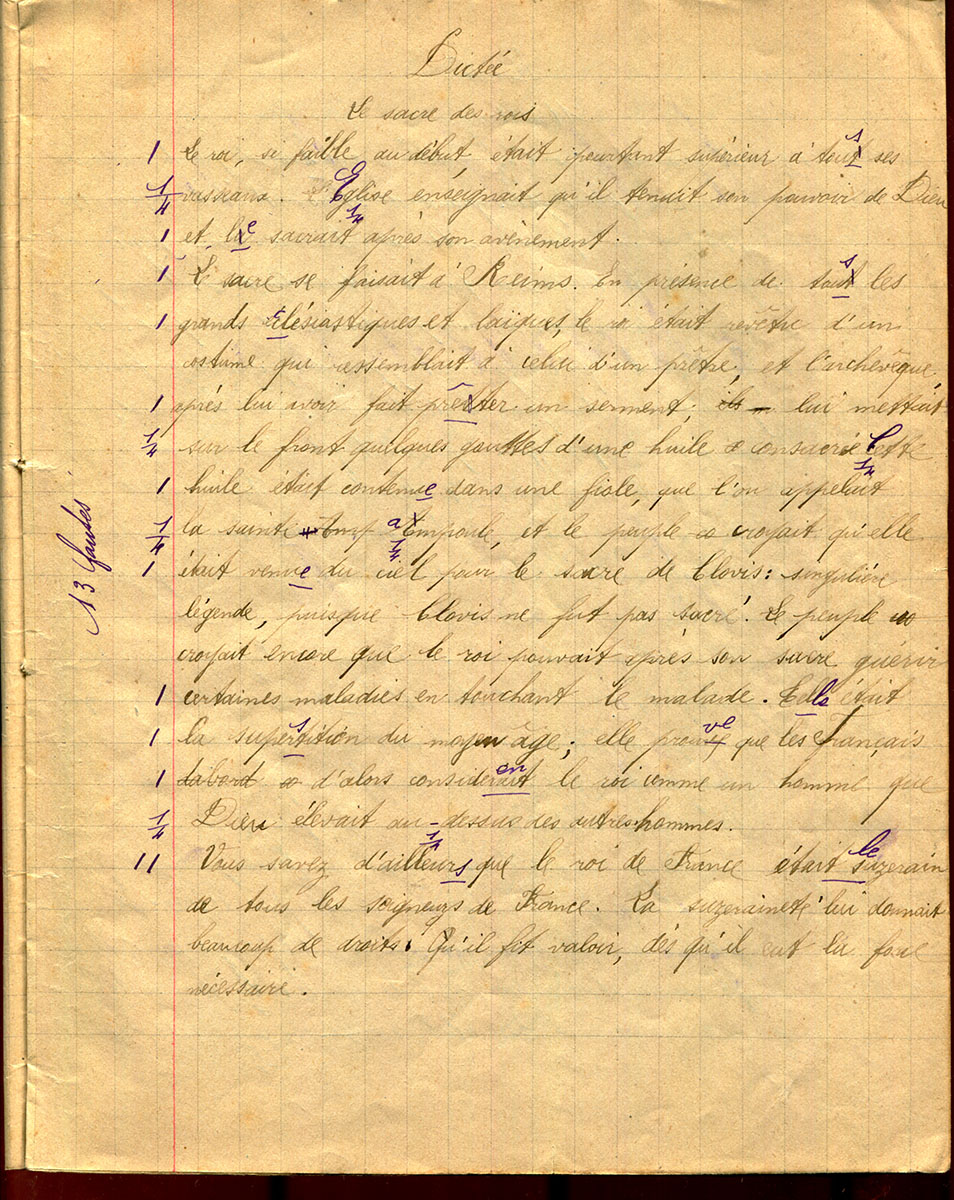 Dictée
Le sacre des rois
1 Le roi, si faible au début était pourtant supérieur à tout s ses
1/4 vassaux. L'Eglise enseignait qu'il tenait son pouvoir de Dieu
1/4
1 et le sacrait après son avènement.
1 Le sacre se faisait à Reims. En présence de tout s les
1 grands eclésiastiques et laïques, le roi était revêtu d'un
costume qui ressemblait à celui d'un prêtre, et l'archevêque,
1 après lui avoir fait prêter un serment, ils lui mettait
1/4 sur le front quelques gouttes d'une huile consacrée Cette
1/4
1 huile était contenue dans une fiole, que l'on appelait
1/4 la sainte Ampoule, et le peuple croyait qu'elle
1/4
1 était venue du ciel pour le sacre de Clovis: singulière
légende, puisque Clovis ne fut pas sacré. Le peuple
croyait encore que le roi pouvait après son sacre guérir
1 certaines maladies en touchant le malade. était
1 la superstition du moyen âge; elle prouve que les Français
1 dabord d'alors considérait en le roi comme un homme que
1/4 Dieu élevait au-dessus des autres hommes.
1/4
11 Vous savez d'ailleurs que le roi de France était le suzerain
de tous les seigneurs de France. La suzeraineté lui donnait
beaucoup de droits. Qu'il fit valoir, dès qu'il eut la force
nécessaire.
13 fautes